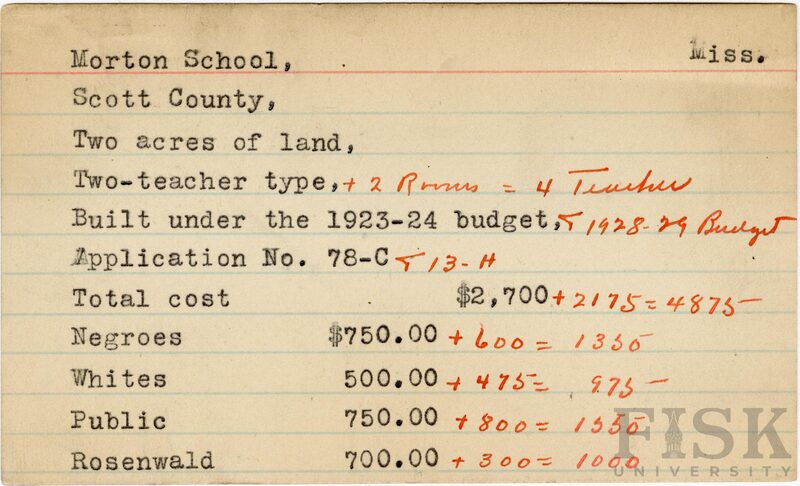 Morton School, Miss.
Scott County,
Two acres of land,
Two-teacher type, + 2 Rooms = 4 Teacher
Built under the 1923-24 budget, & 1928-29 Budget
Application No. 78-C & 13-H
Total cost $2,700 + 2175 = 4875
Negroes $750.00 + 600 = 1350
Whites 500.00 + 475 = 975
Public 750.00 + 800 = 1550
Rosenwald 700.00 + 300 = 1000
FISK
UNIVERSITY